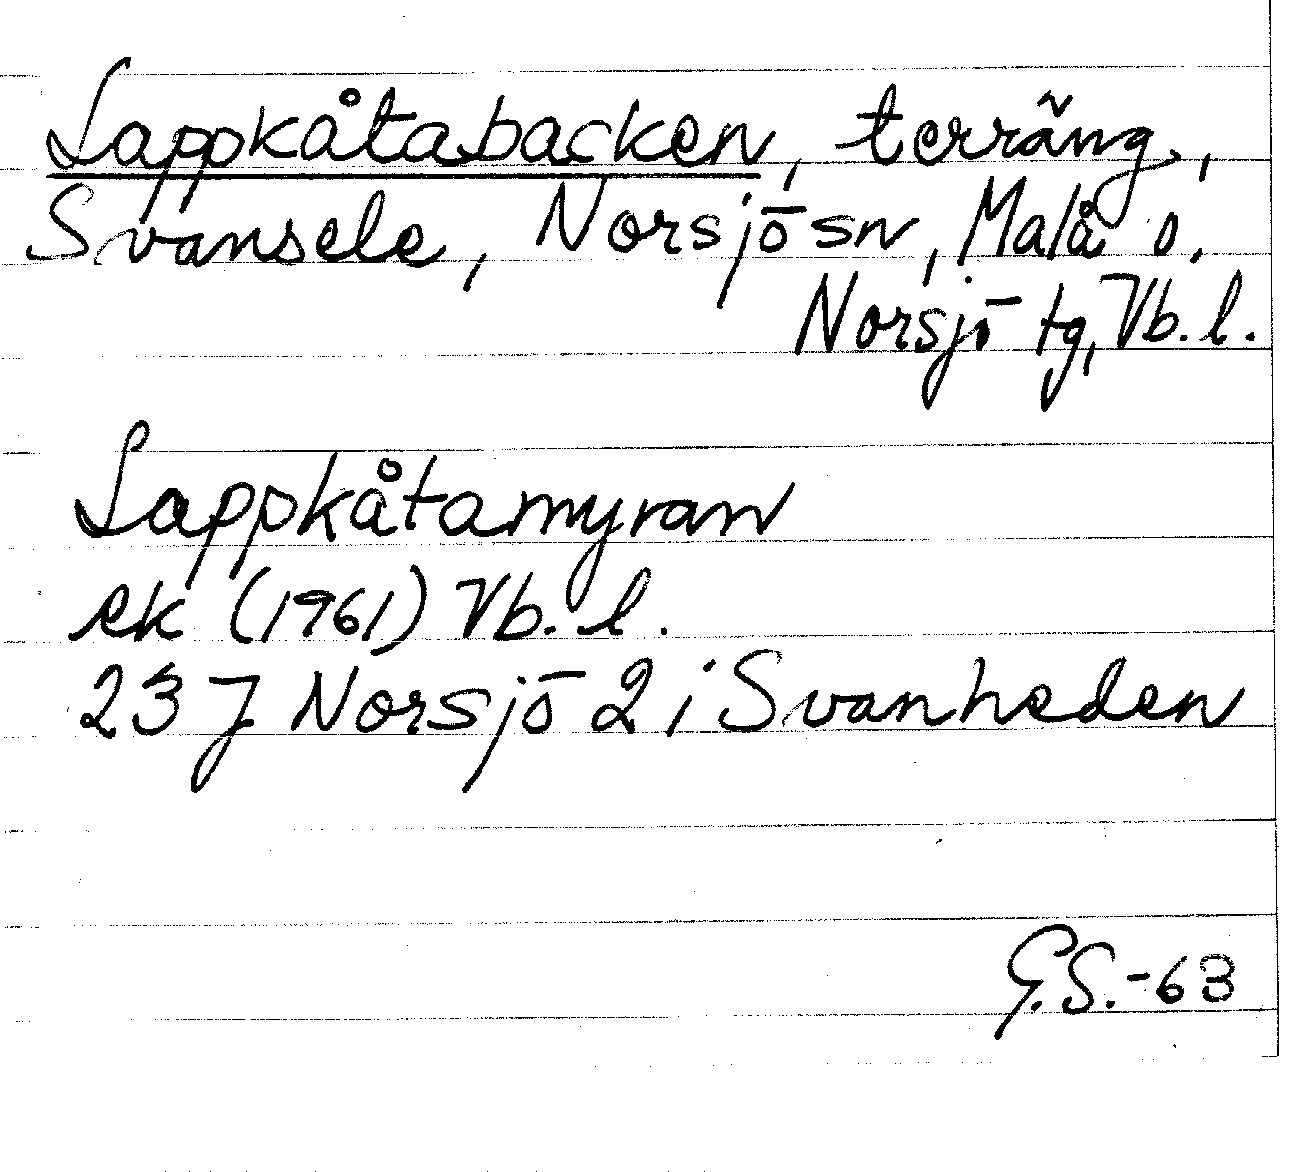 Lappkåtabacken, terräng,
Svansele, Norsjö sn, Malå o.
Norsjö tg, Vb. l.
Lappkåtamyran
ek (1961) Vb. l.
23 J Norsjö 2 i Svanheden
G.S.-63